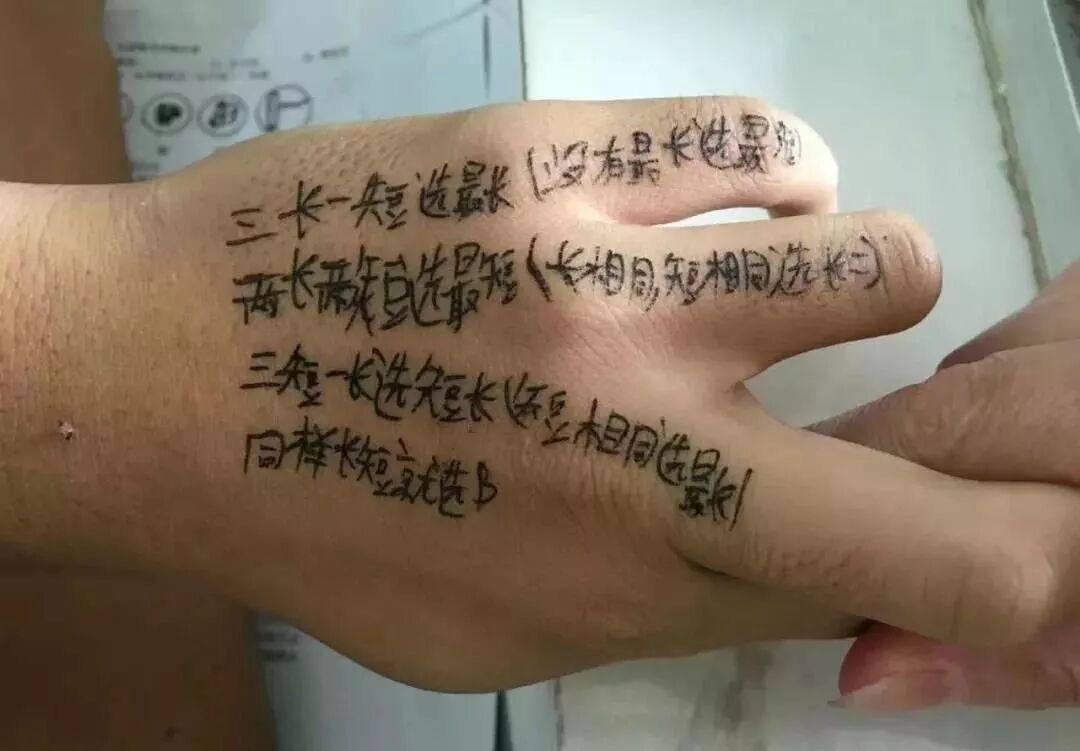 三长一短选最长(没有最长选最短)
两长两短选最短(长相同,短相同选长二)
三短一长选短长(短相同选最长)
同样长短就选B